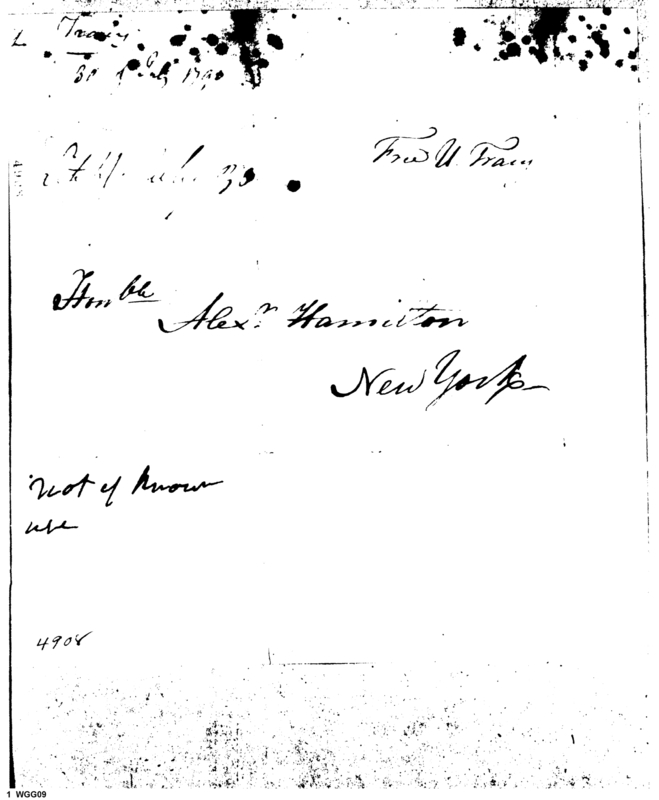 Tracy
30 July 179
July 30
Free U. Tracy
Honble
Alexr Hamilton
New York
not of known
use
4908
1 WGG09